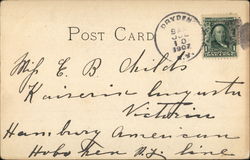 POST CARD
DRYDEN
1907
N.Y.
Miss E. B. Childs
Kaiserin Augusta
Victoria
Hamburg American
Hoboken N.J. Line